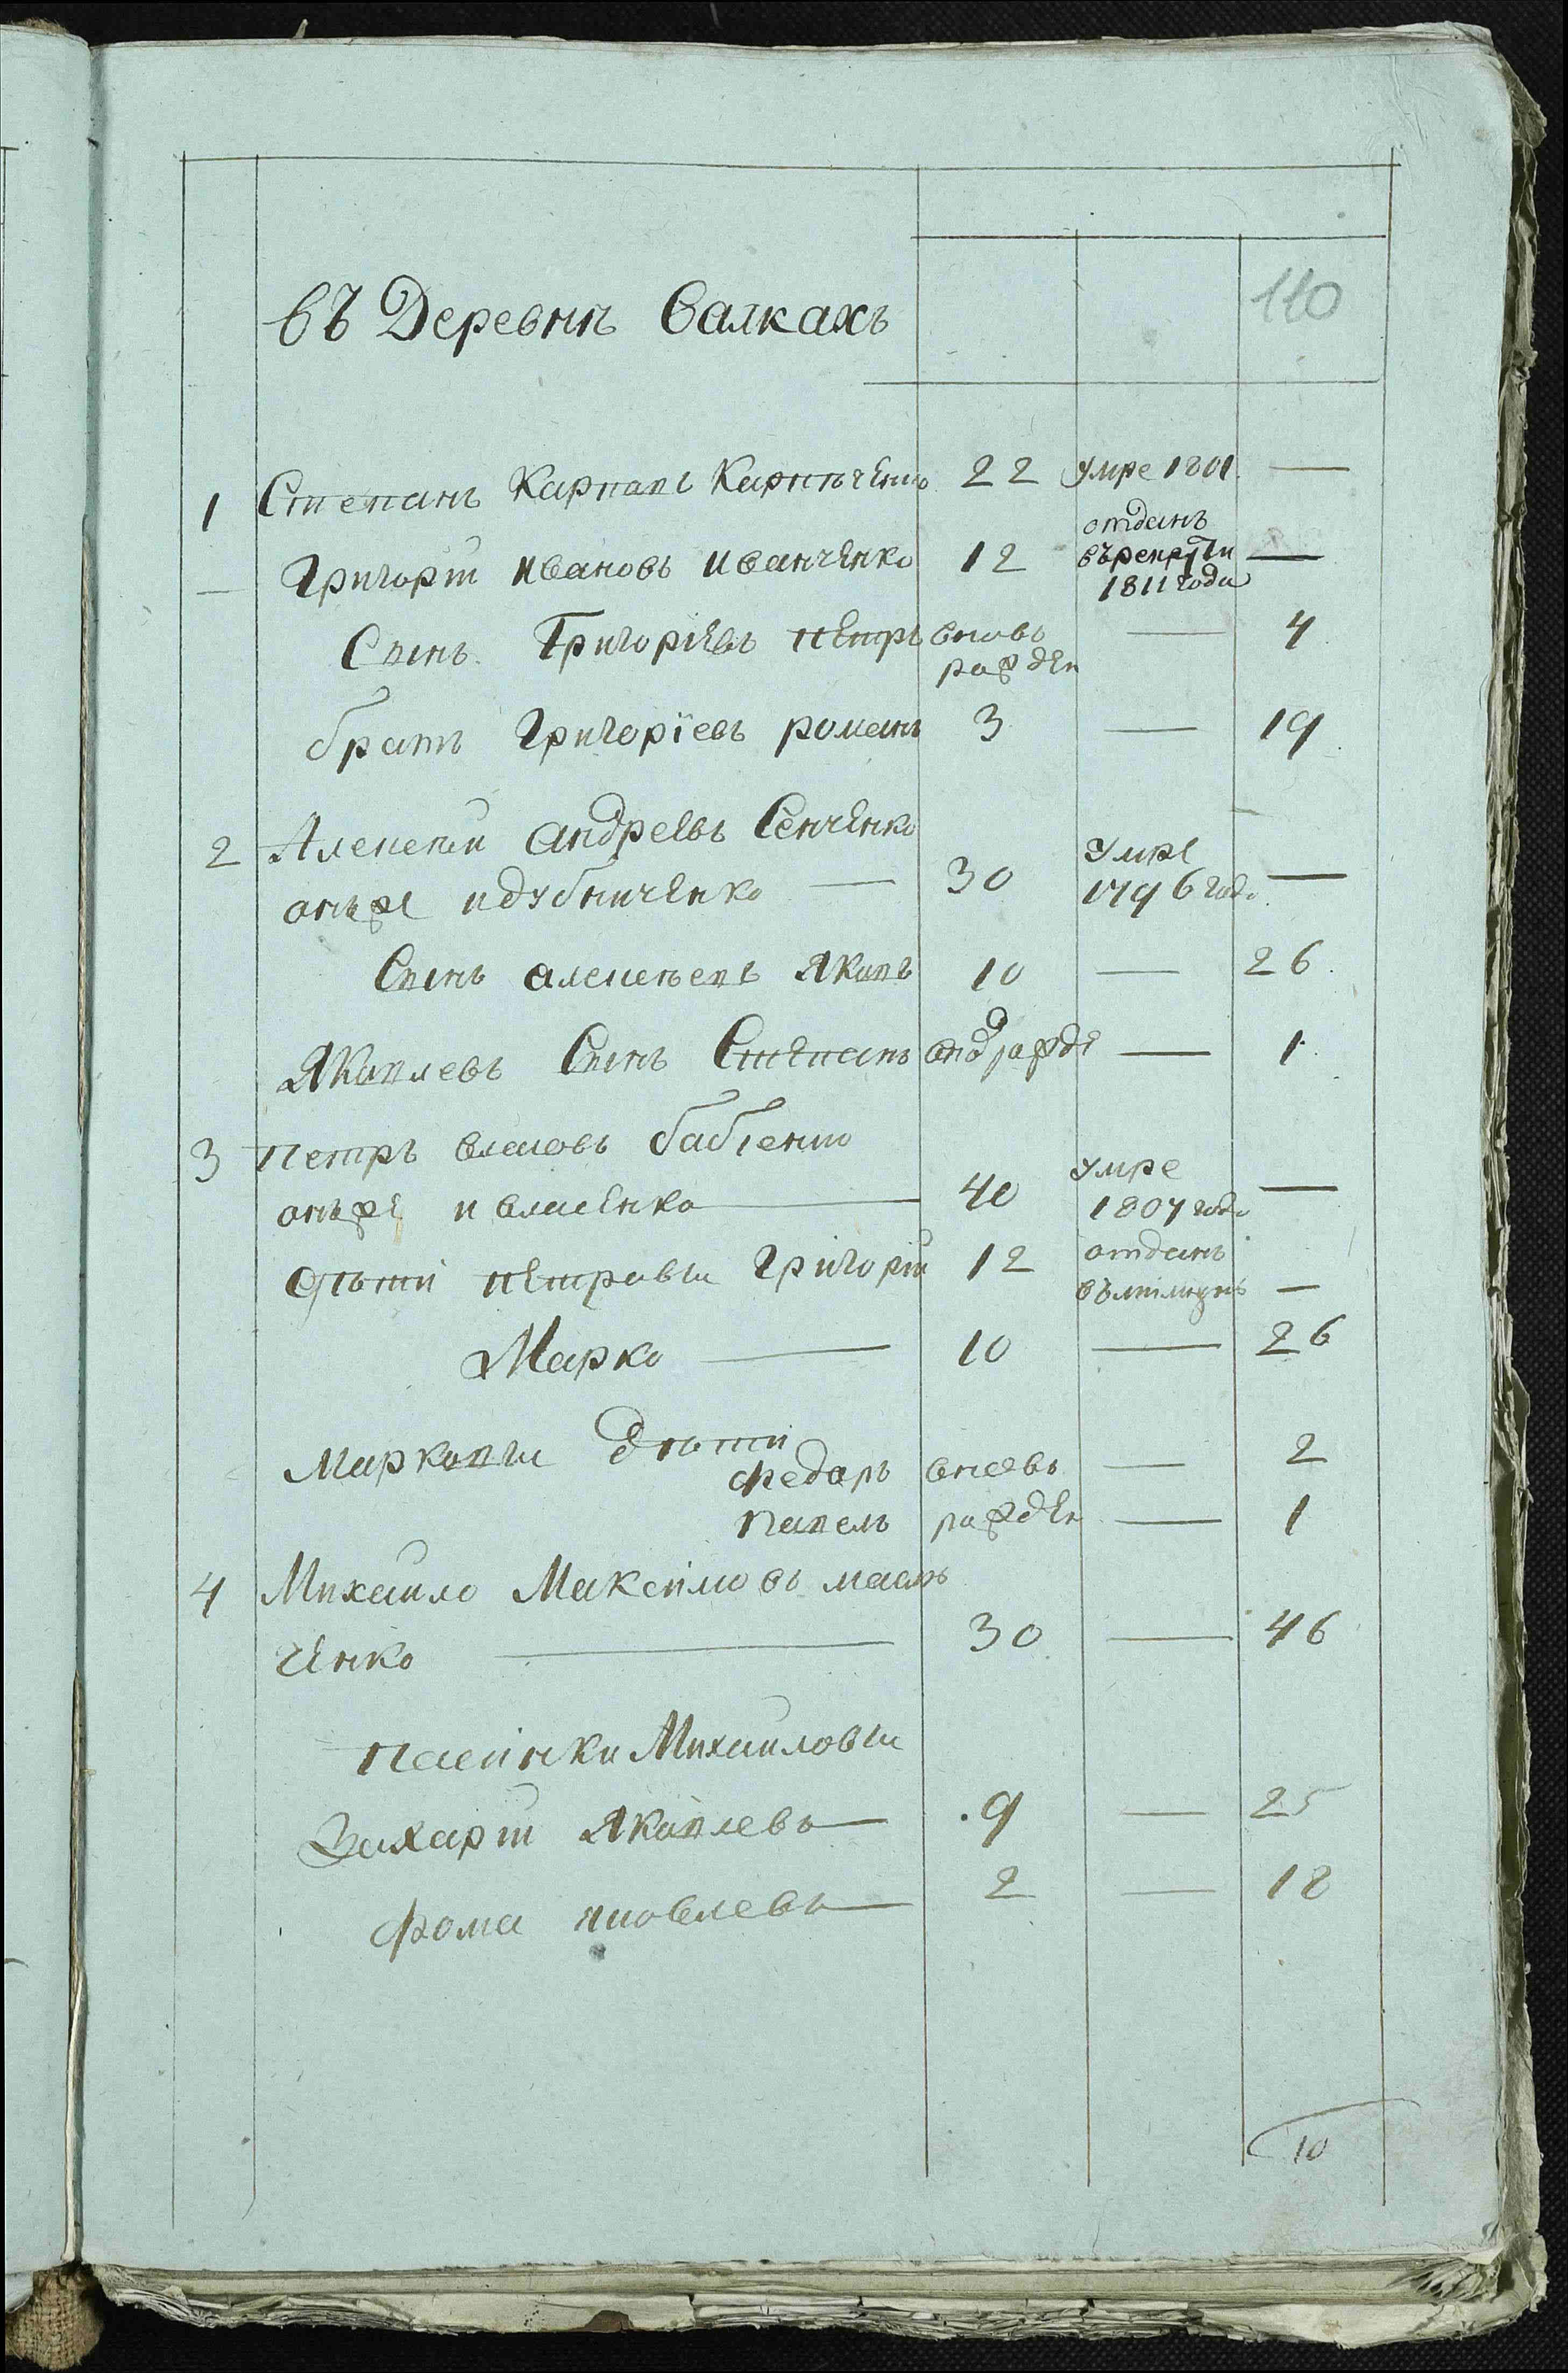 110
въ Деревни Валкахъ
1 Степанъ Карповъ Карпѣченко 22 умре 1801 —
— Григорій Ивановъ Иванченко 12 отданъ въ рекруты 1811 года —
Сынъ Григоріевъ Петръ вновь рожден — 4
братъ Григоріевъ романъ 3 — 19
2 Алексѣй андреевъ Сенченко
онъже и дубниченко — 30 умре 1796 года —
Сынъ алексѣевъ Яковъ 10 — 26
Яковлевъ Сынъ Степанъ рожде — 1
3 Петръ власовъ бабченко
онъже и власенко — 40 умре 1807 года —
Дѣти Петровы Григорій 12 отданъ —
Марко — 10 — 26
Марковы Дѣти
Федоръ вновь — 2
Павелъ рожден — 1
4 Михаило Максимовъ
ченко — 30 — 46
Пасинки Михаиловы
Захарій Яковлевъ — 9 — 25
Фома яковлевъ — 2 — 18
10